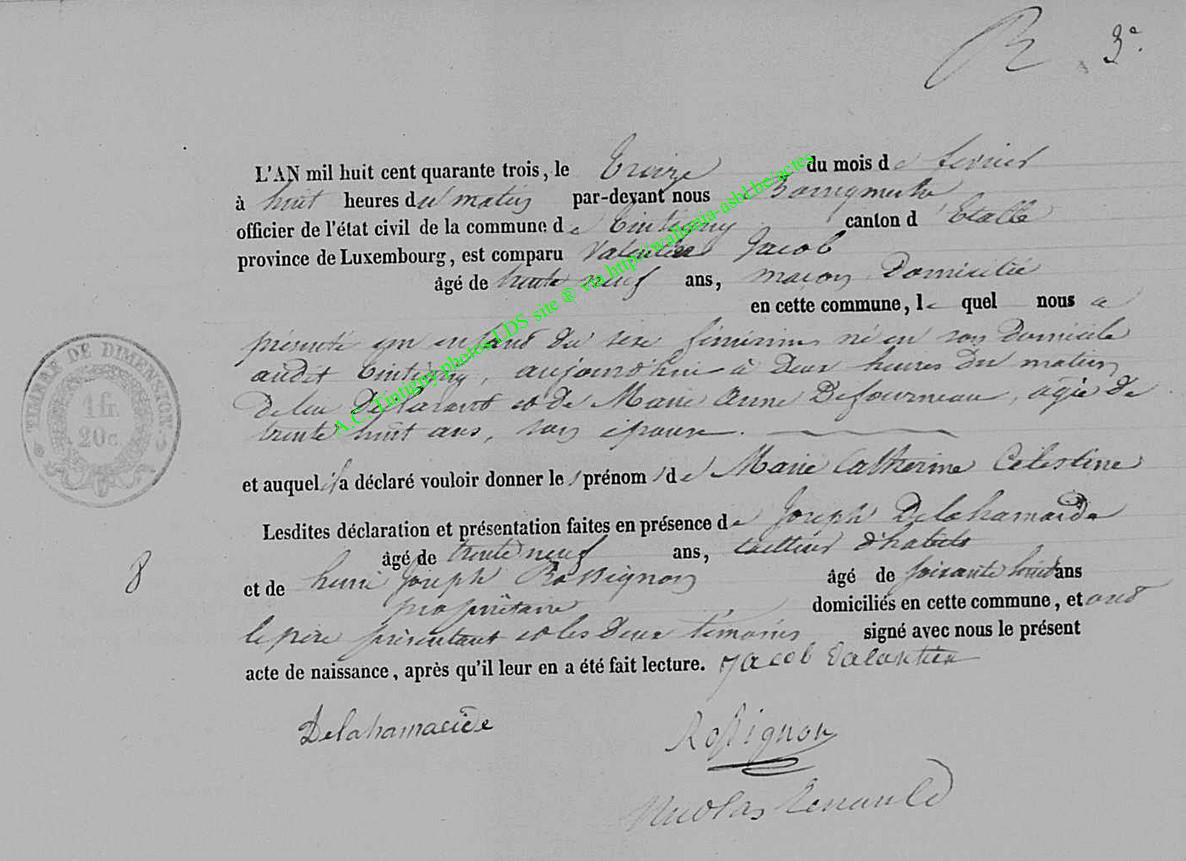 R 3e
L'AN mil huit cent quarante trois, le treize du mois de fevrier
à huit heures du matin par-devant nous Bourgmestre
officier de l'état civil de la commune de Tintigny canton d'Etalle
province de Luxembourg, est comparu Valentin Jacob
âgé de trente neuf ans, macon Domicilié
en cette commune, le quel nous a
présenté un enfant du sexe féminin né en son Domicile
audit Tintigny, aujourd'hui à Deux heures Du matin
De lui Déclarant et de Marie Anne Defourneau, agée de
trente huit ans, son épouse.
et auquel il a déclaré vouloir donner le prénom de Marie Catherine Celestine
Lesdites déclaration et présentation faites en présence de Joseph Delahamaide
âgé de trente neuf ans, tailleur d'habits
et de henri Joseph Rossignon âgé de soixante huit ans
propriétaire domiciliés en cette commune, et ont
le père présentant et les Deux temoins signé avec nous le présent
acte de naissance, après qu'il leur en a été fait lecture. Jacob Valentin
Delahamaide Rossignon
Nicolas Renauld
8
TIMBRE DE DIMENSION
1 fr
20 c.
A.C. Tintigny photos LDS site ® via http://wallonia-asbl.be/actes